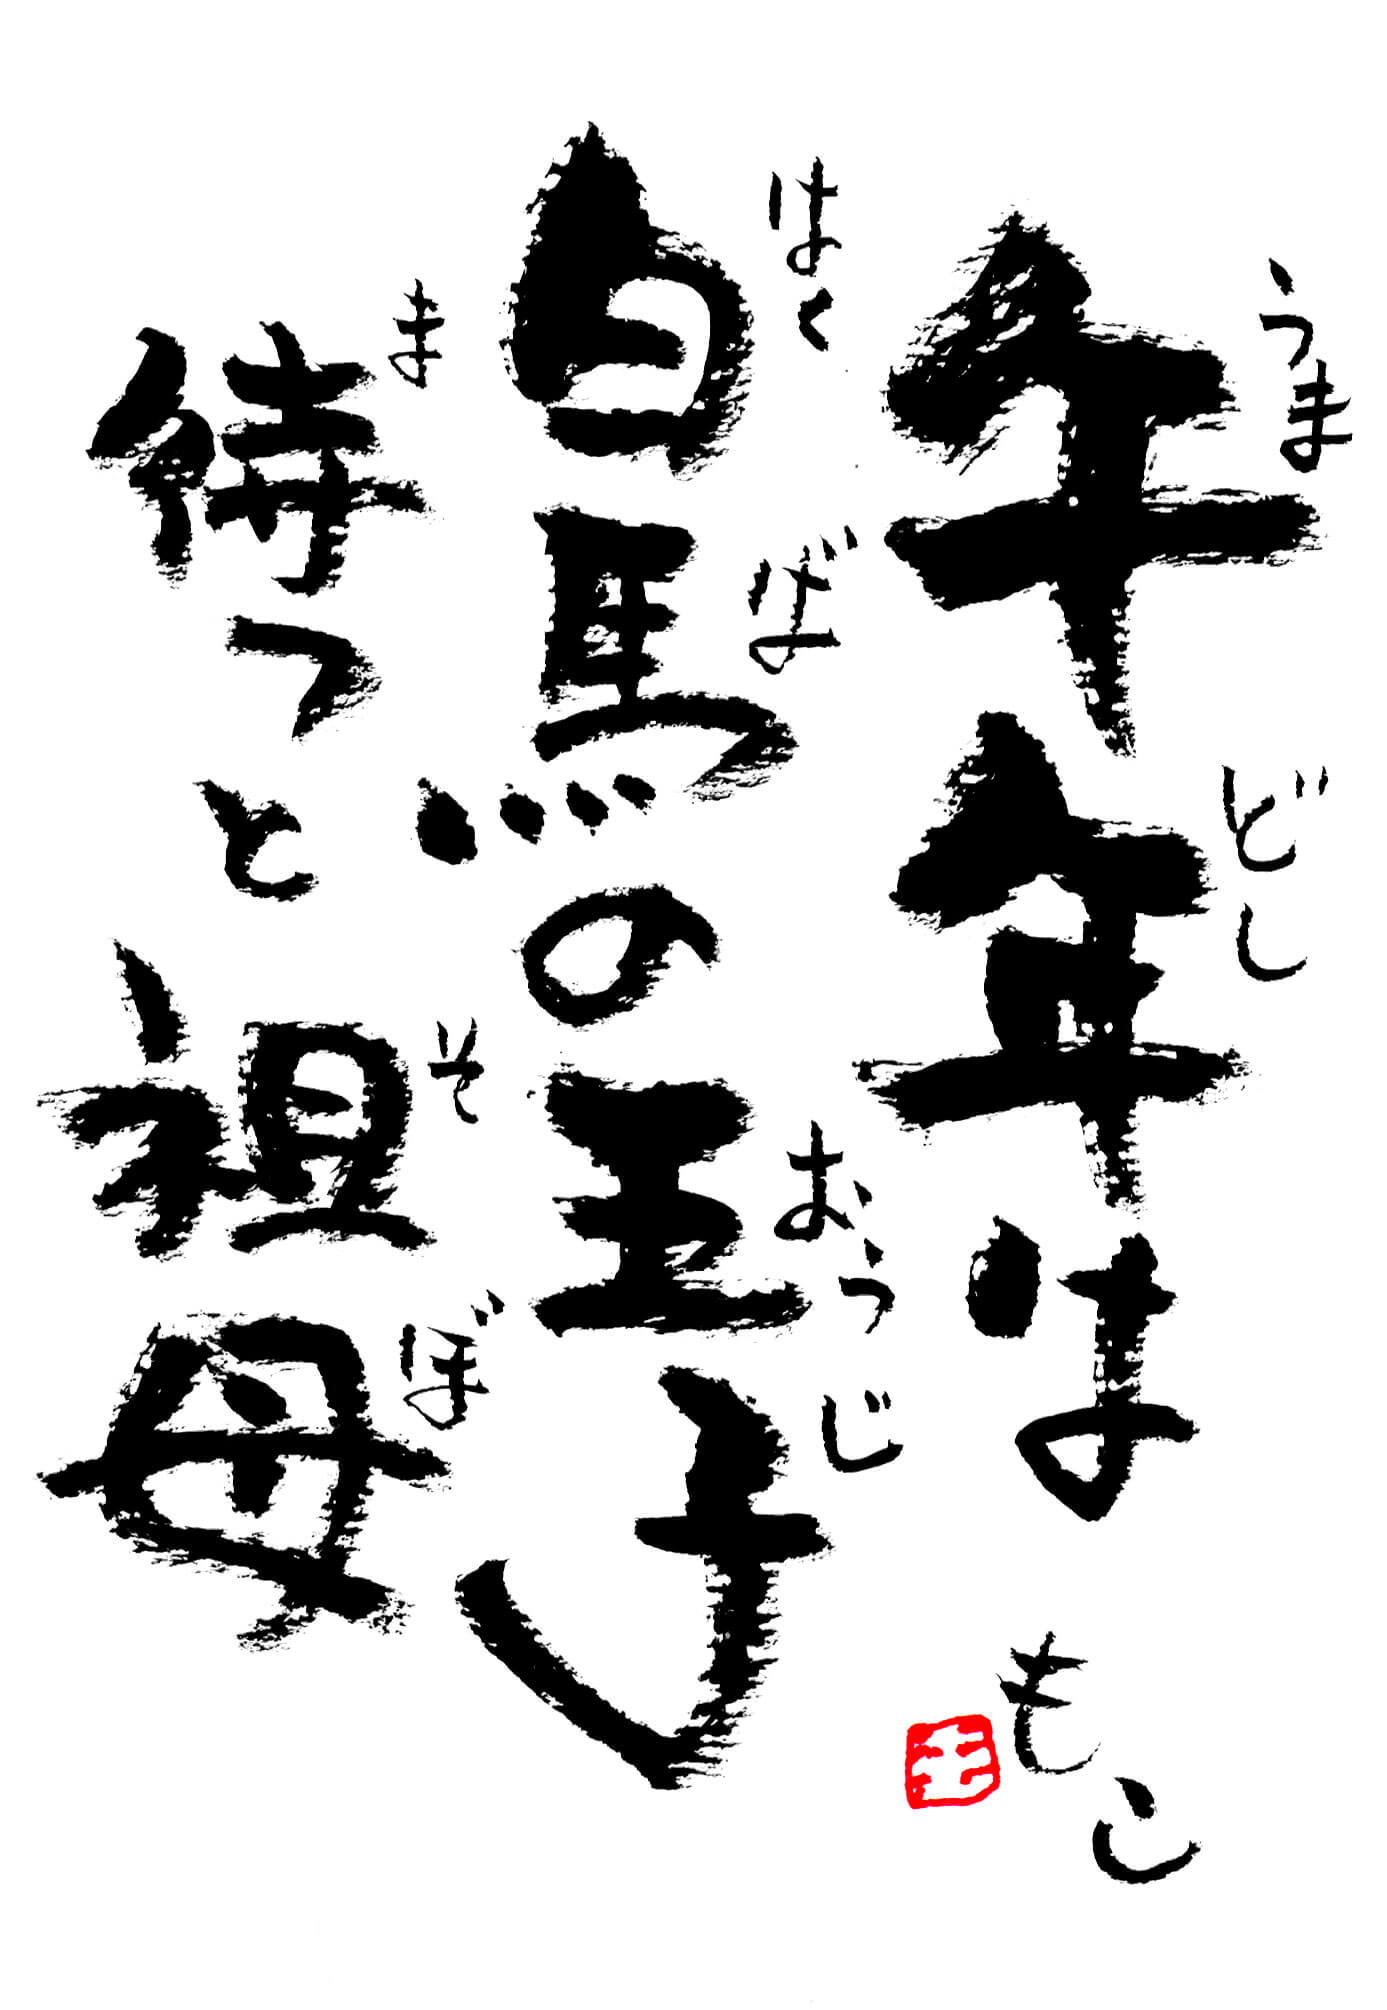 午年は
うまどし
白馬の王子
はくば
おうじ
待つと祖母
ま
そぼ
もこ